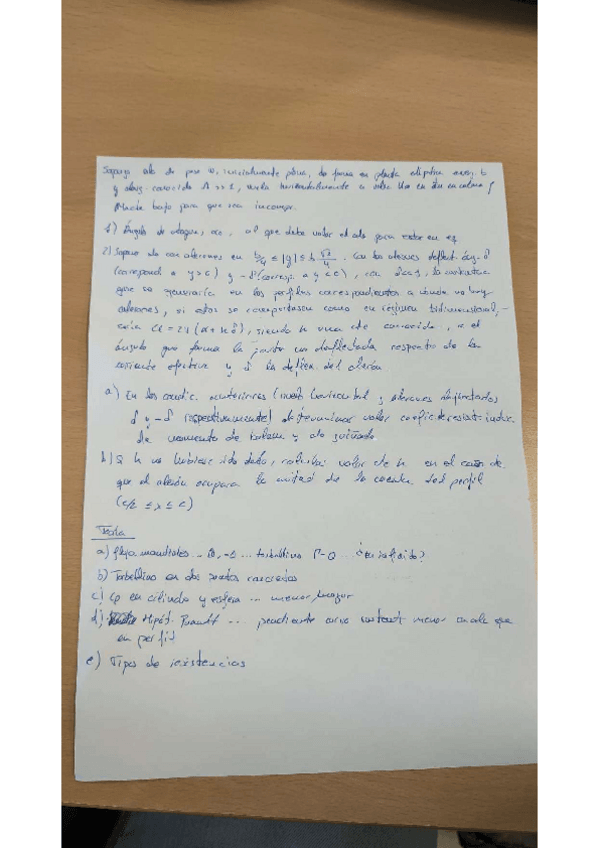 Suponga ala de peso W, inicialmente plana, de forma en planta elíptica enverg. b
y alarg. conocido Λ >> 1, vuela horizontalmente a veloc. U∞ en aire en calma ρ
Mach bajo para que sea incompr.
1) Ángulo de ataque, α∞, al que debe volar el ala para estar en eq.
2) Supone ala con alerones en b/4 ≤ |y| ≤ b √3/4. Con los alerones deflect. áng. δ
(correspond. a y>0) y -δ (corresp. a y<0), con δ<<1, la sustentación
que se generaría en los perfiles correspondientes a donde van los
alerones, si estos se comportasen como en régimen bidimensional,
sería Cl = 2π(α + kδ), siendo k una cte conocida, α el
ángulo que forma la parte no deflectada respecto de la
corriente efectiva y δ la deflex. del alerón.
a) En las condic. anteriores (vuelo horizontal y alerones deflectados
δ y -δ respectivamente) determinar valor coefic. de resist. induc.
de momento de balance y de guiñada.
b) Si k no hubiese sido dado, calcular valor de k en el caso de
que el alerón ocupara la mitad de la cuerda del perfil
(c/2 ≤ x ≤ c)
Teoría
a) flujo manantiales torbellino Γ-Q
b) Torbellino en dos paredes
c) Cp en cilindro y esfera ... menor, mayor
d) Hipót. Prandtl ... pendiente curva sustent. menor en ala que
en perfil
e) Tipos de resistencias